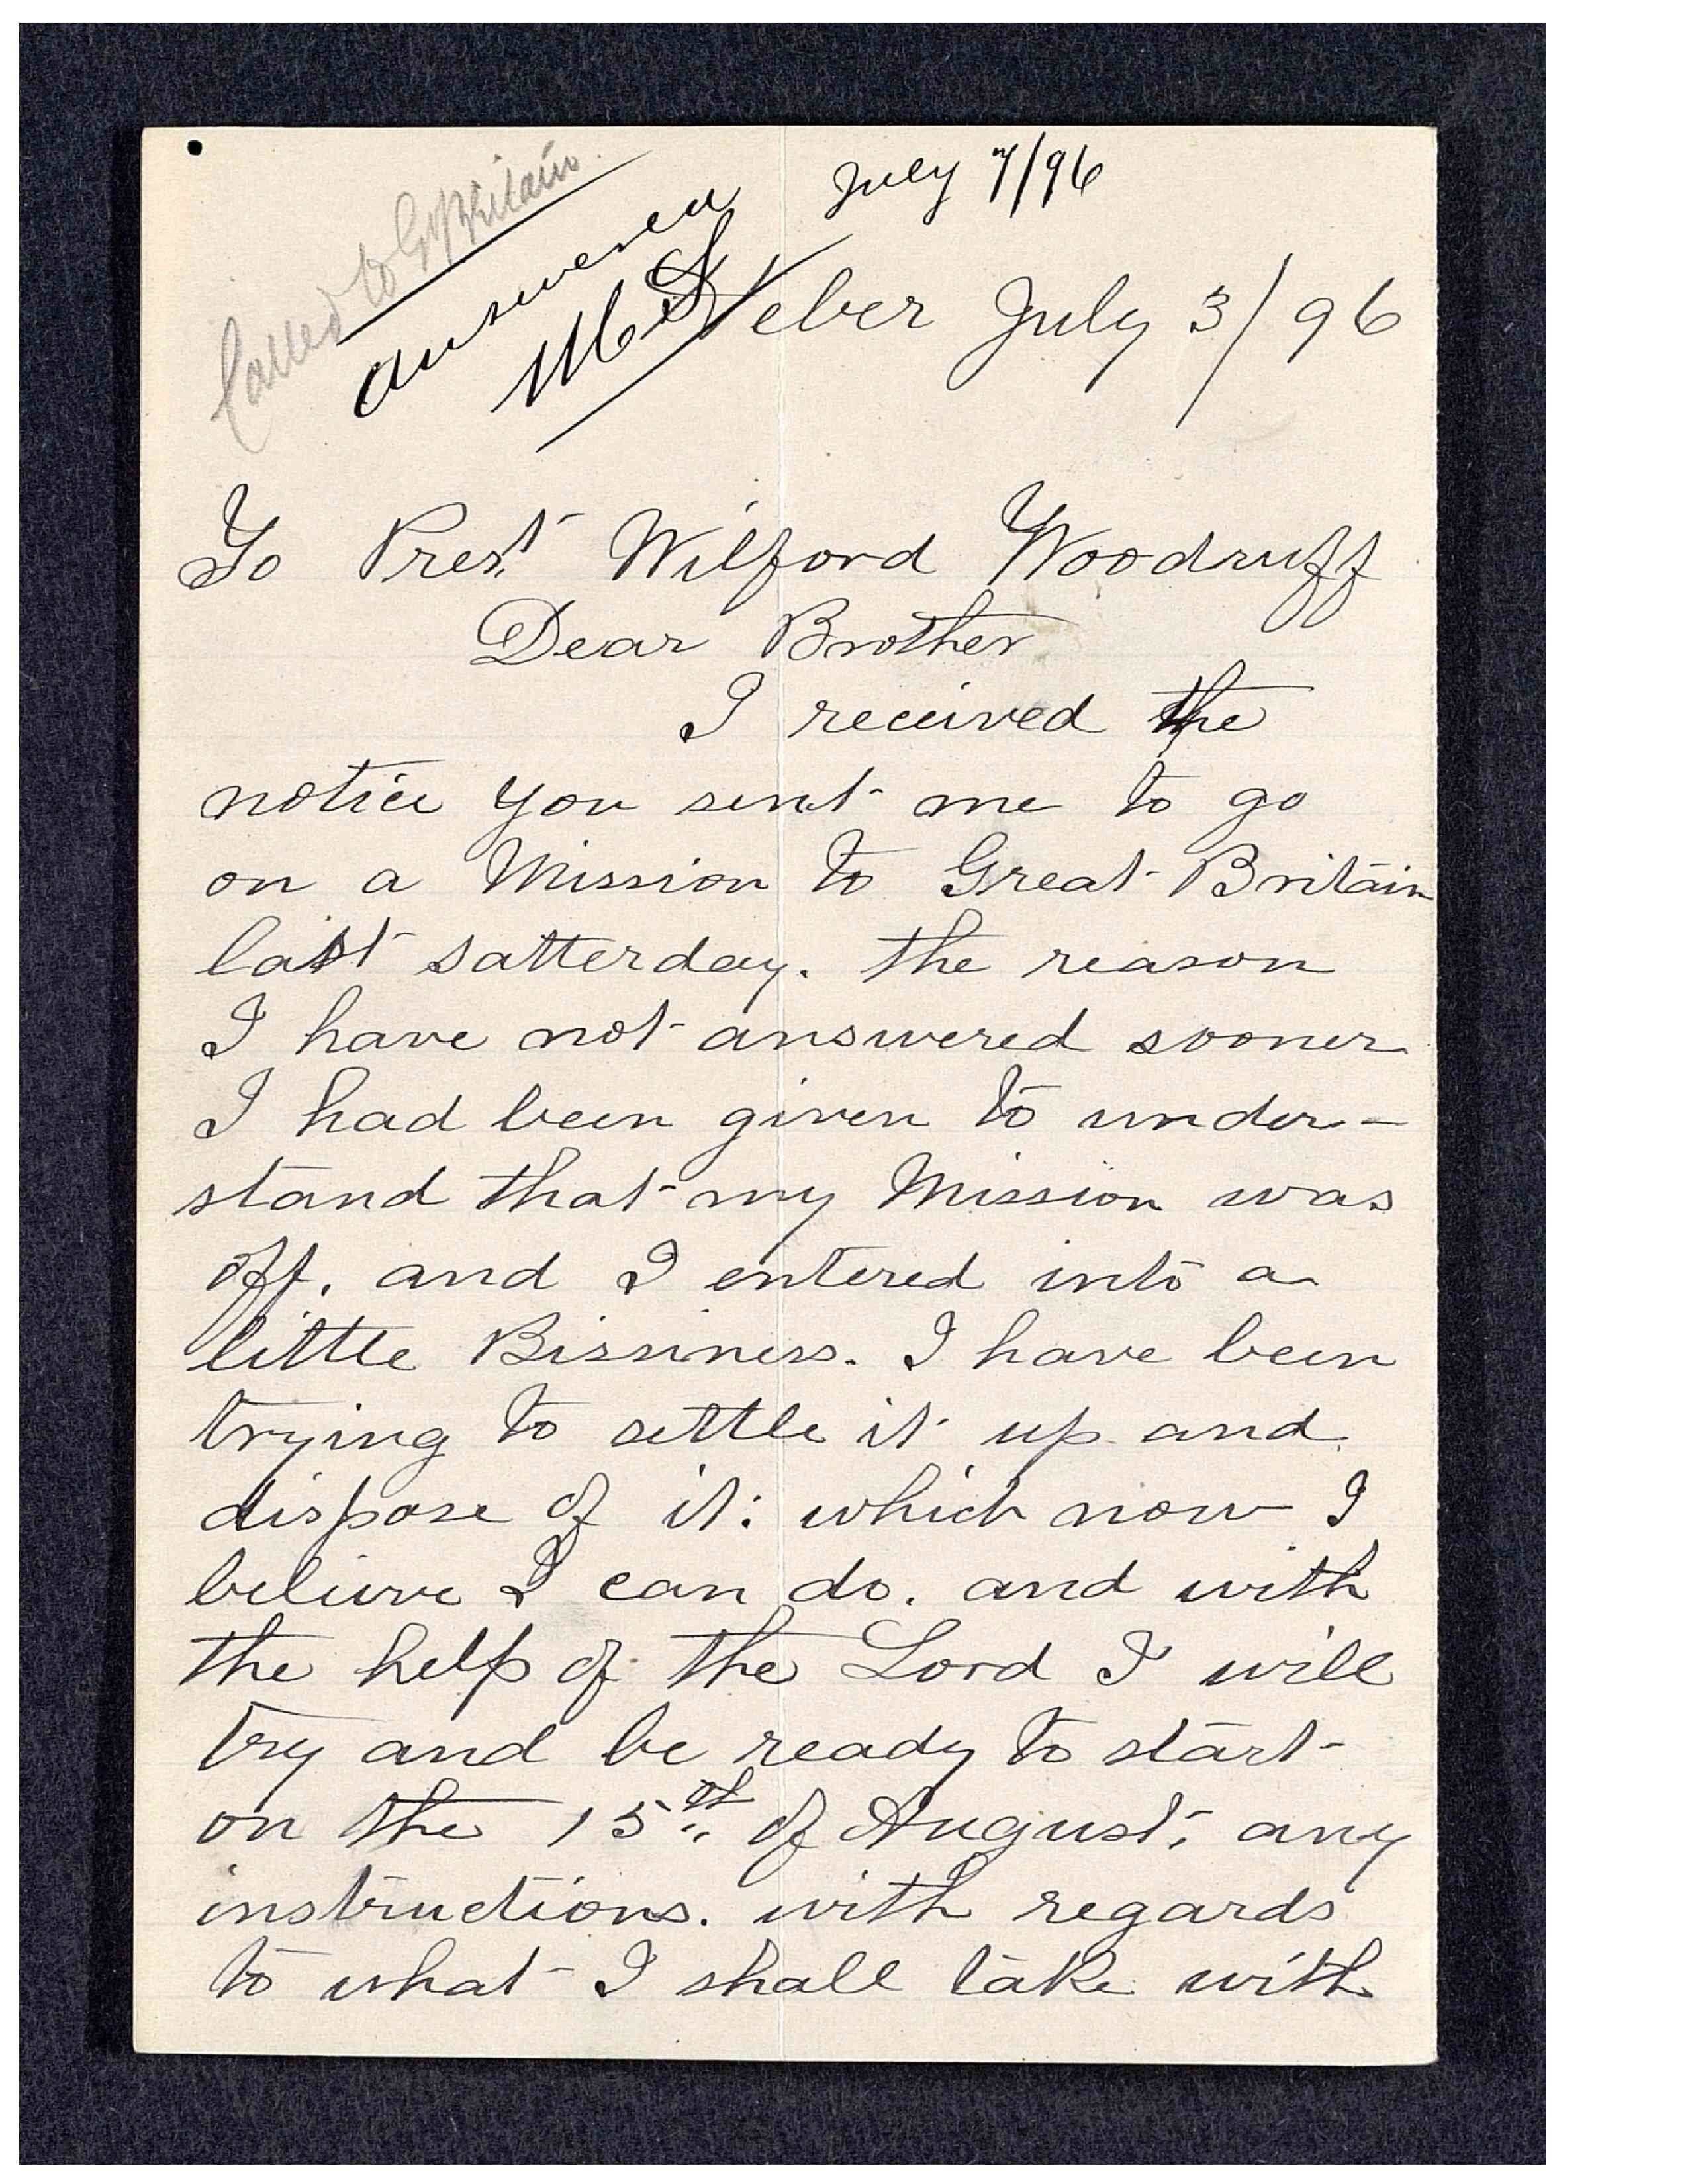 Called to G. Britain.
answered July 7/96
Heber July 3/96
To Prest Wilford Woodruff
Dear Brother
I received the
notice you sent me to go
on a Mission to Great Britain
last satterday. the reason
I have not answered sooner
I had been given to under-
stand that my Mission was
off. and I entered into a
little Bissiness. I have been
trying to settle it up and
dispose of it: which now I
believe I can do. and with
the help of the Lord I will
try and be ready to start
on the 15th of August, any
instructions. with regards
to what I shall take with